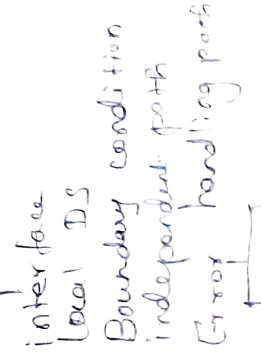 interface
local DS
Boundary condition
independent path
Error handling path